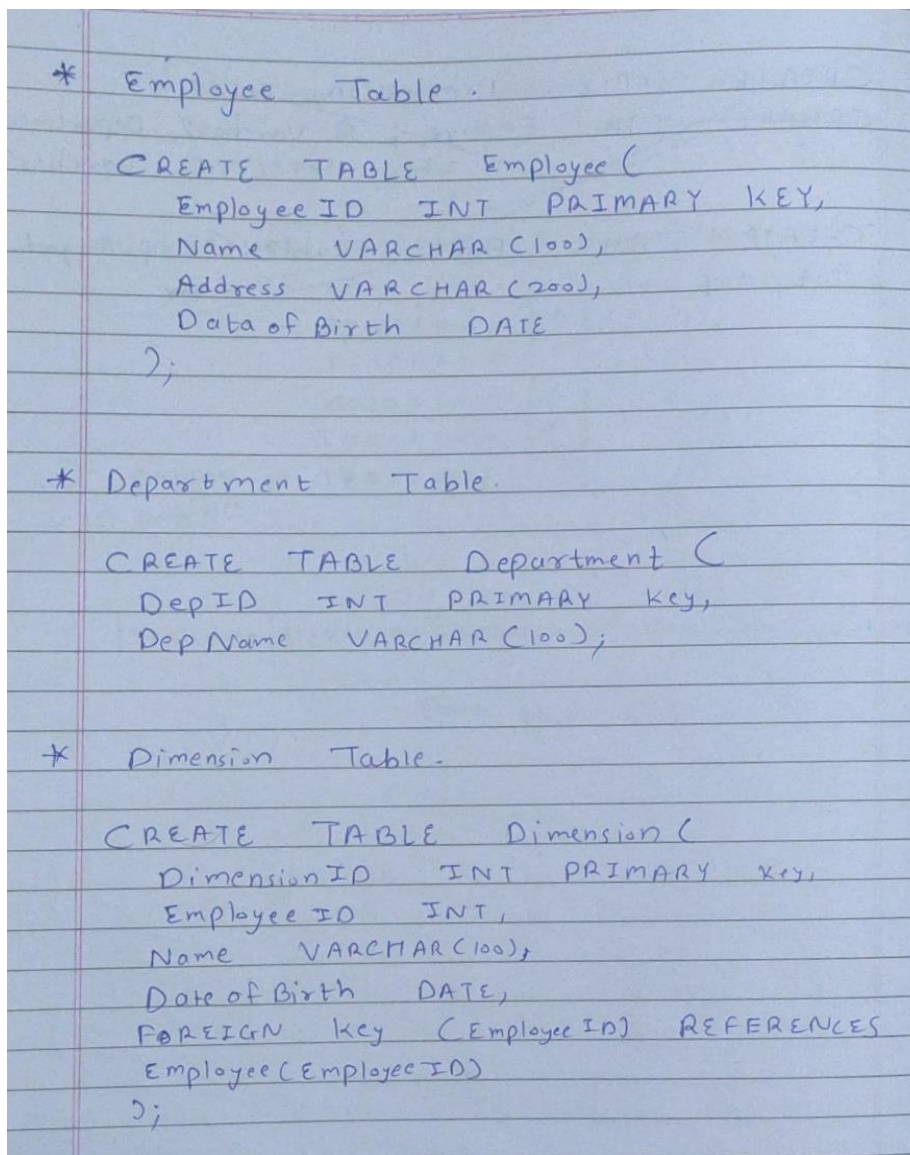 * Employee Table.
CREATE TABLE Employee (
Employee ID INT PRIMARY KEY,
Name VARCHAR (100),
Address VARCHAR (200),
Data of Birth DATE
);
* Department Table.
CREATE TABLE Department (
Dep ID INT PRIMARY Key,
Dep Name VARCHAR (100);
* Dimension Table.
CREATE TABLE Dimension (
Dimension ID INT PRIMARY Key,
Employee ID INT,
Name VARCHAR (100),
Date of Birth DATE,
FOREIGN key (Employee ID) REFERENCES
Employee (Employee ID)
);